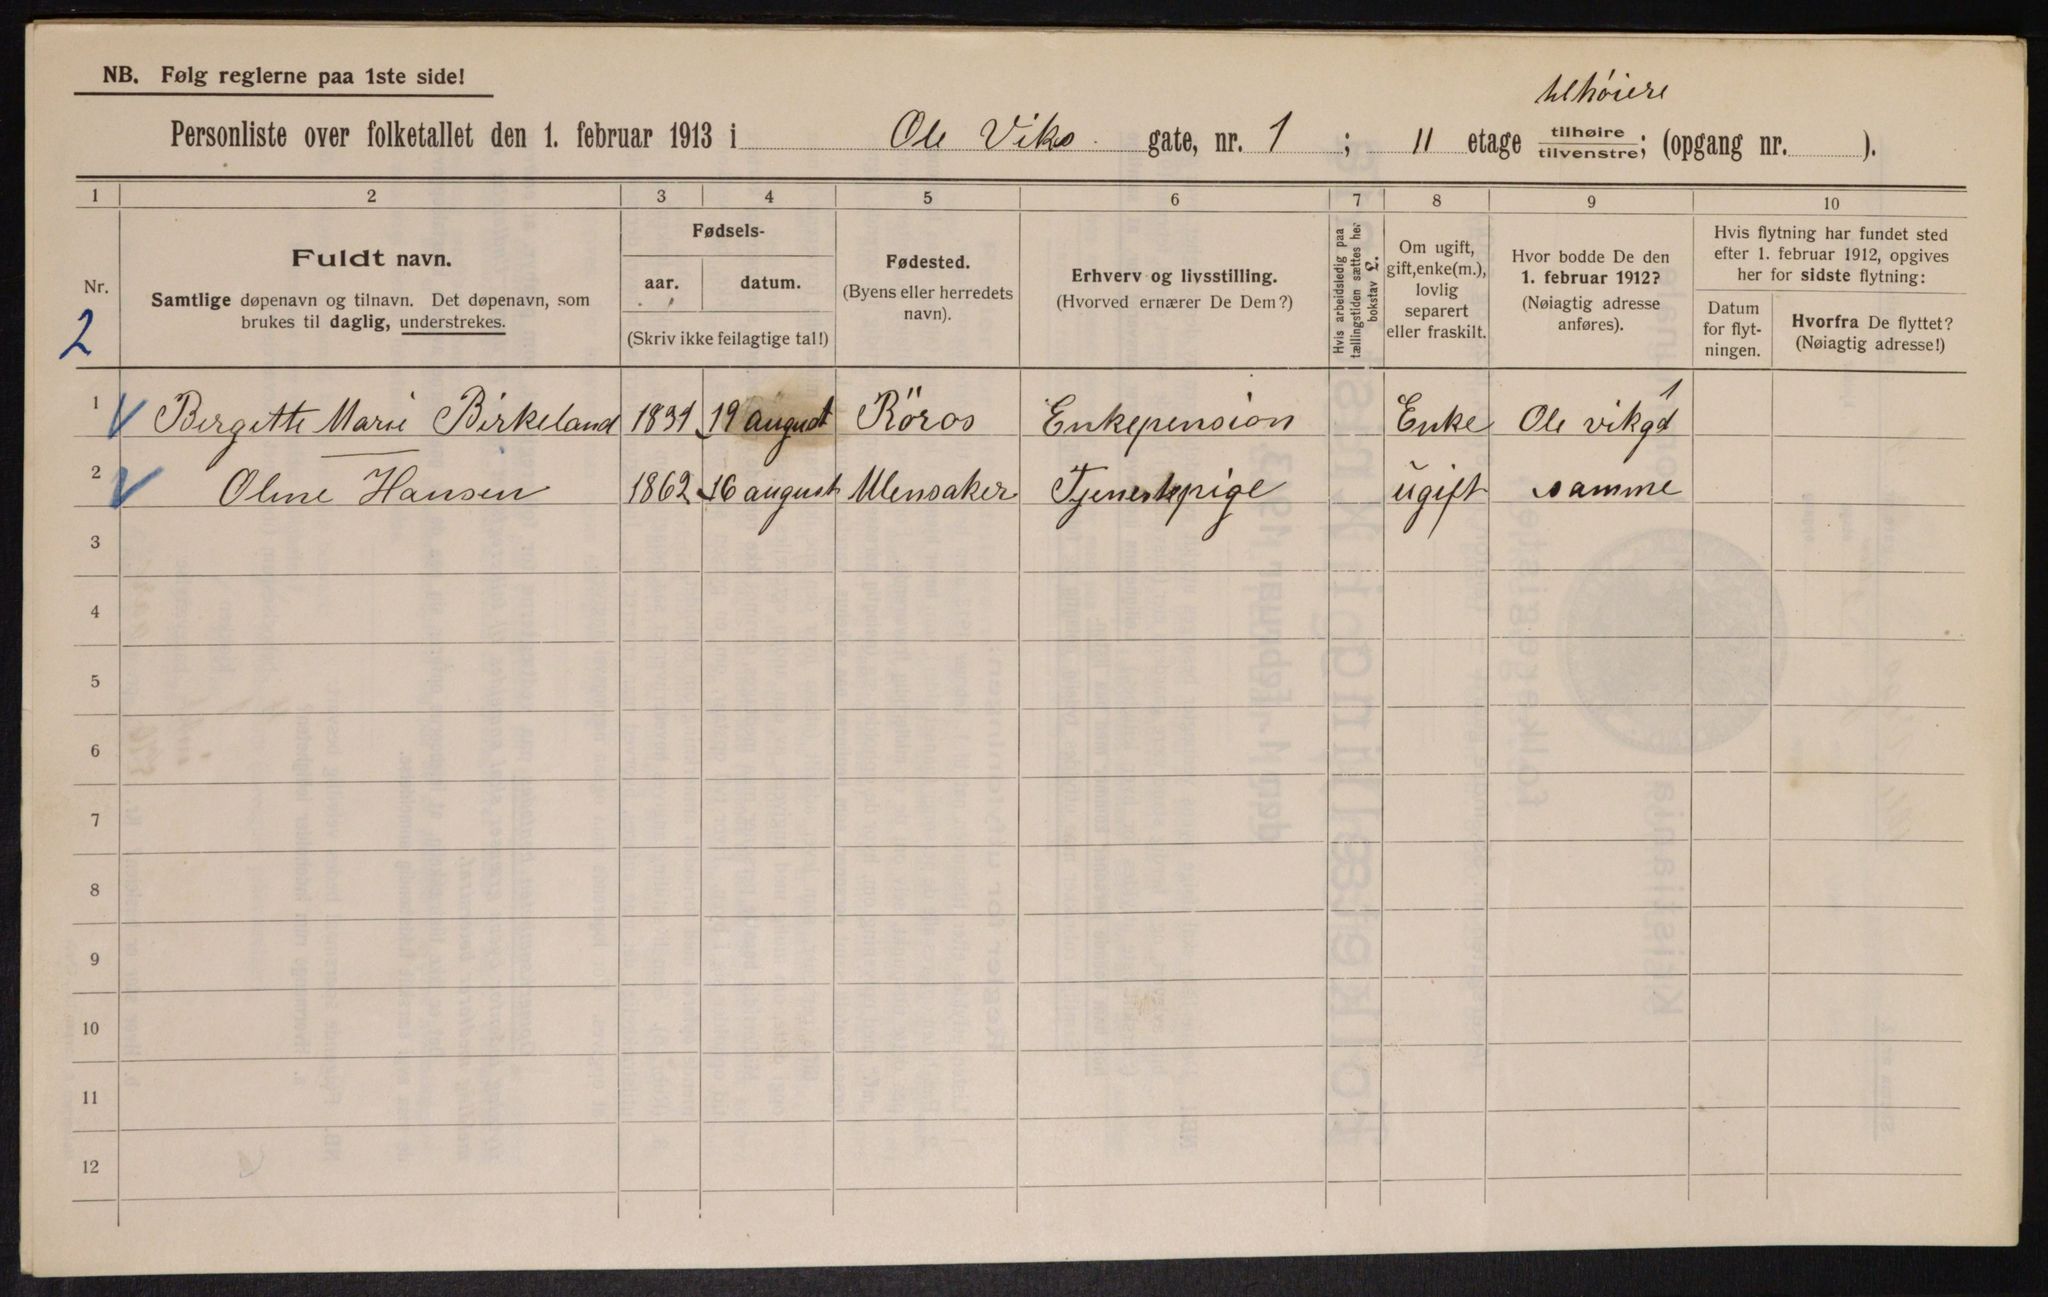 NB. Følg reglerne paa 1ste side!
tilhøiere
Personliste over folketallet den 1. februar 1913 i Ole Viks gate, nr. 1 ; II etage tilhøire/tilvenstre; (opgang nr. ).
1 2 3 4 5 6 7 8 9 10
Nr.
2
Fuldt navn.
Samtlige døpenavn og tilnavn. Det døpenavn, som
brukes til daglig, understrekes.
Fødsels-
aar. datum.
(Skriv ikke feilagtige tal!)
Fødested.
(Byens eller herredets
navn).
Erhverv og livsstilling.
(Hvorved ernærer De Dem?)
Hvis arbeidsledig paa
tællingstiden sættes her
bokstav L.
Om ugift,
gift, enke(m.),
lovlig
separert
eller fraskilt.
Hvor bodde De den
1. februar 1912?
(Nøiagtig adresse
anføres).
Hvis flytning har fundet sted
efter 1. februar 1912, opgives
her for sidste flytning:
Datum
for flyt-
ningen.
Hvorfra De flyttet?
(Nøiagtig adresse!)
1 Bergitte Marie Birkeland 1831 19 august Röros Enkepension Enke Ole vikgd 1
2 Oline Hansen 1862 16 august Ulensaker Tjenestepige ugift samme
3
4
5
6
7
8
9
10
11
12